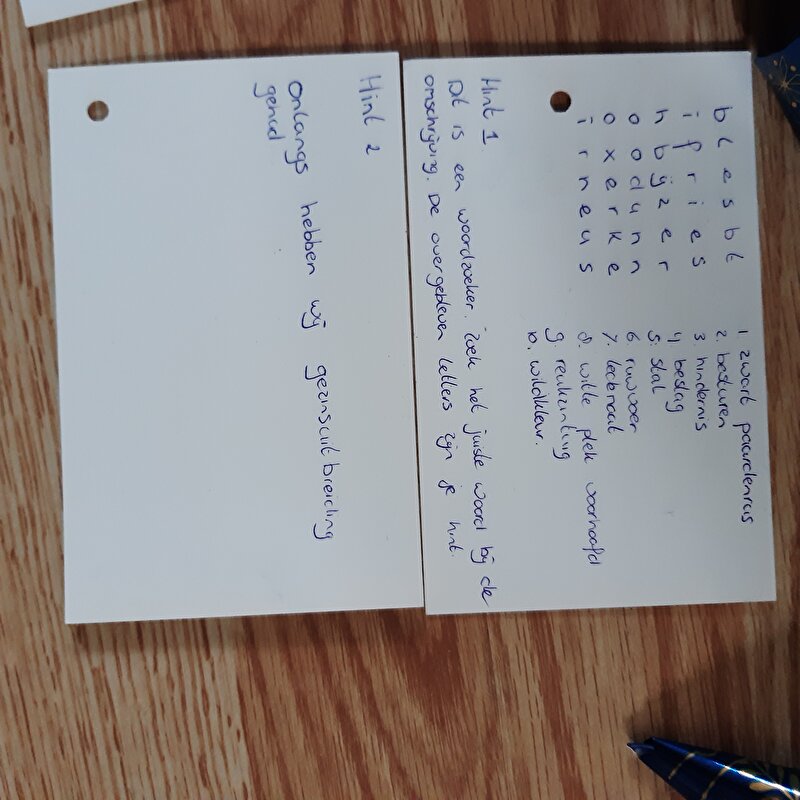 b l e s b t
i f r i e s
h b ij z e r
o o d u n n
o x e r k e
i r n e u s
1. zwart paardenras
2. besturen
3 hindernis
4 beslag
5. stal
6 ruwvoer
7. leibnaat
8. witte plek voorhoofd
9. reukzinting
10. wildkleur.
Hint 1.
Dit is een woordzoeker. Zoek het juiste woord bij de
omschrijving. De overgebleven letters zijn je hint.
Hint 2
Onlangs hebben wij gezinsuitbreiding
gehad